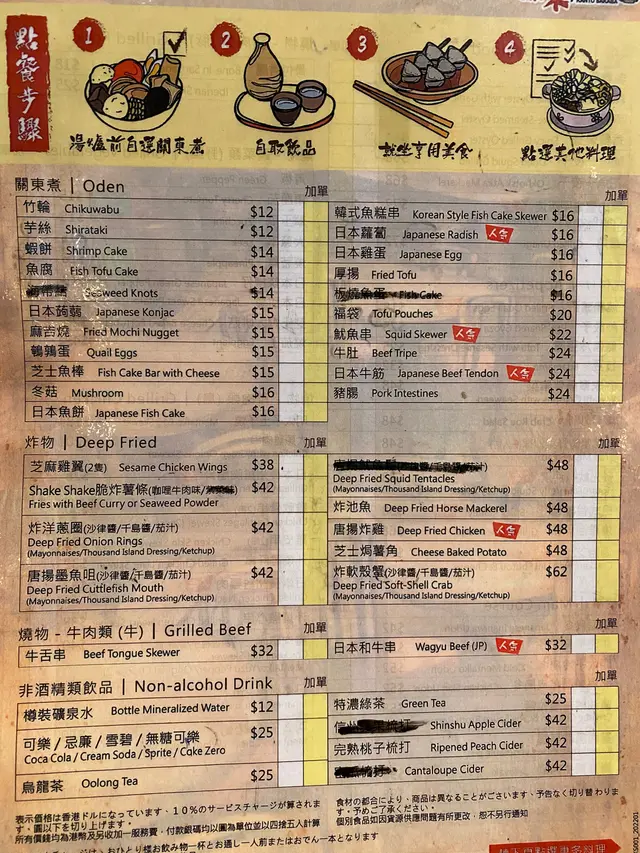 點餐步驟
1
2
3
4
湯爐前自選關東煮
自取飲品
就坐享用美食
點選其他料理
關東煮 | Oden
加單
竹輪 Chikuwabu $12
芋絲 Shirataki $12
蝦餅 Shrimp Cake $14
魚腐 Fish Tofu Cake $14
Seaweed Knots $14
日本蒟蒻 Japanese Konjac $15
麻吉燒 Fried Mochi Nugget $15
鵪鶉蛋 Quail Eggs $15
芝士魚棒 Fish Cake Bar with Cheese $15
冬菇 Mushroom $16
日本魚餅 Japanese Fish Cake $16
加單
韓式魚糕串 Korean Style Fish Cake Skewer $16
日本蘿蔔 Japanese Radish 人氣 $16
日本雞蛋 Japanese Egg $16
厚揚 Fried Tofu $16
Fish Cake $16
福袋 Tofu Pouches $20
魷魚串 Squid Skewer 人氣 $22
牛肚 Beef Tripe $24
日本牛筋 Japanese Beef Tendon 人氣 $24
豬腸 Pork Intestines $24
炸物 | Deep Fried
加單
芝麻雞翼(2隻) Sesame Chicken Wings $38
Shake Shake脆炸薯條(咖喱牛肉味/ $42
Fries with Beef Curry or Seaweed Powder
炸洋蔥圈(沙律醬/千島醬/茄汁) $42
Deep Fried Onion Rings
(Mayonnaises/Thousand Island Dressing/Ketchup)
唐揚墨魚咀(沙律醬/千島醬/茄汁) $42
Deep Fried Cuttlefish Mouth
(Mayonnaises/Thousand Island Dressing/Ketchup)
加單
/千島醬/茄汁) $48
Deep Fried Squid Tentacles
(Mayonnaises/Thousand Island Dressing/Ketchup)
炸池魚 Deep Fried Horse Mackerel $48
唐揚炸雞 Deep Fried Chicken 人氣 $48
芝士焗薯角 Cheese Baked Potato $48
炸軟殼蟹(沙律醬/千島醬/茄汁) $62
Deep Fried Soft-Shell Crab
(Mayonnaises/Thousand Island Dressing/Ketchup)
燒物 - 牛肉類 (牛) | Grilled Beef
加單
牛舌串 Beef Tongue Skewer $32
加單
日本和牛串 Wagyu Beef (JP) 人氣 $32
非酒精類飲品 | Non-alcohol Drink
加單
樽裝礦泉水 Bottle Mineralized Water $12
可樂 / 忌廉 / 雪碧 / 無糖可樂 $25
Coca Cola / Cream Soda / Sprite / Coke Zero
烏龍茶 Oolong Tea $25
加單
特濃綠茶 Green Tea $25
信州 梳打 Shinshu Apple Cider $42
完熟桃子梳打 Ripened Peach Cider $42
梳打 Cantaloupe Cider $42
表示価格は香港ドルになっています、10%のサービスチャージが加算されま
す・圓以下を切り上げます・
所有價錢均為港幣及另收加一服務費，付款銀碼均以圓為單位並以四捨五入計算
おひとり様お飲み物一杯とお通し一人前またはおでん一本となります
食材の都合により、商品は異なることがございます、予告なく切り替わりま
す・予めご了承ください・
個別食品如因貨源供應問題有所更改，恕不另行通知